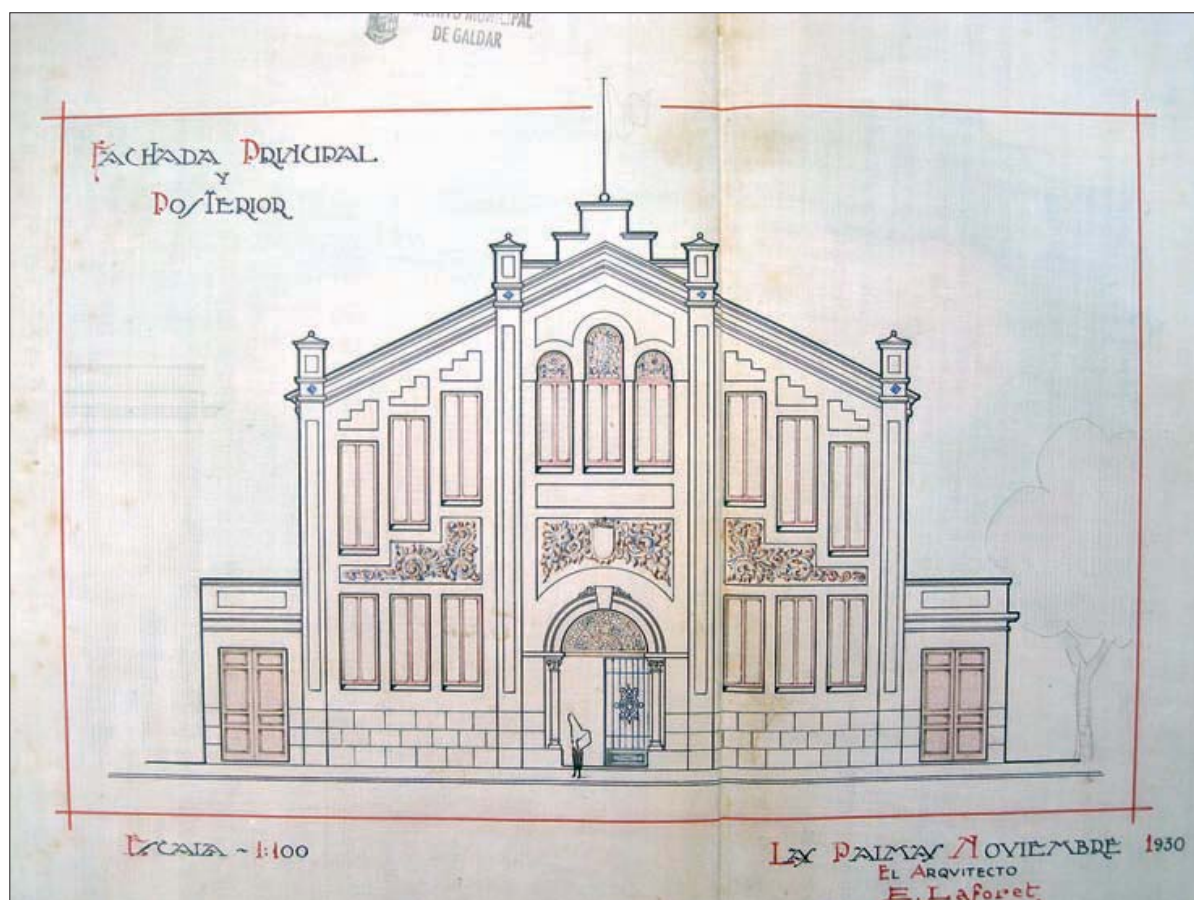 MUNICIPAL
DE GALDAR
FACHADA PRINCIPAL
Y
POSTERIOR
ESCALA ~ 1:100
LAS PALMAS NOVIEMBRE 1930
EL ARQVITECTO
E. Laforet